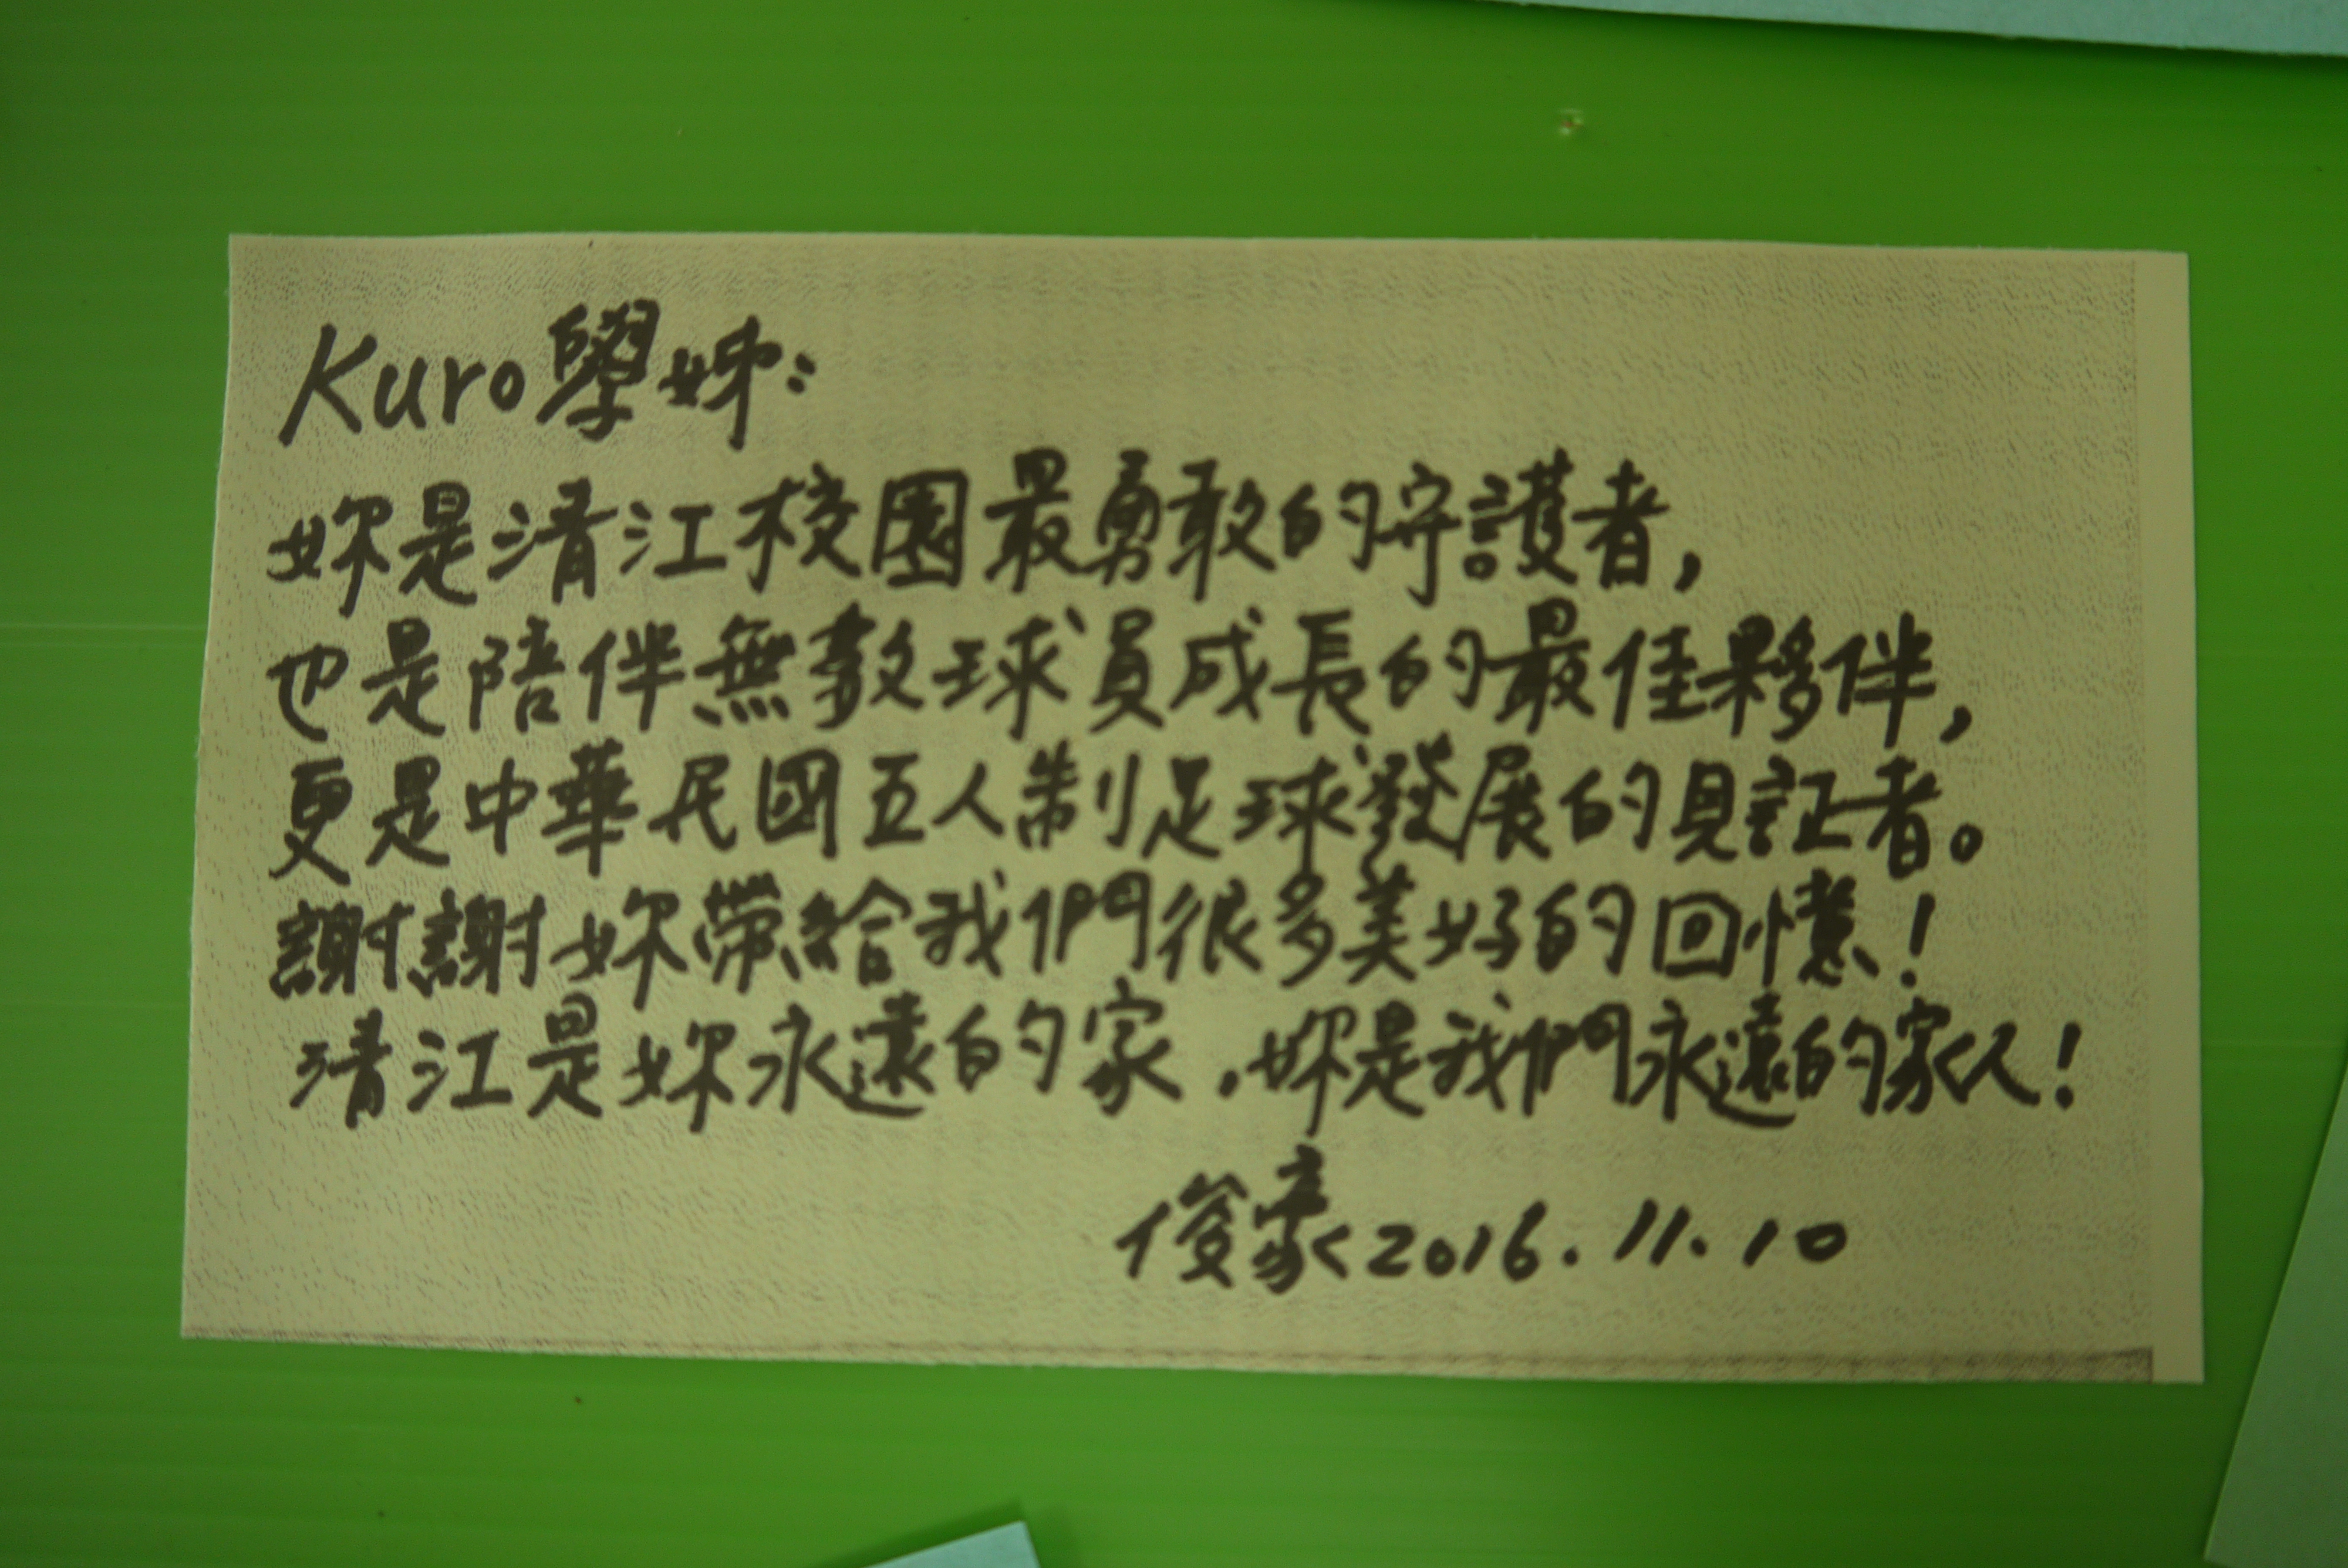 Kuro學姊:
妳是清江校園最勇敢的守護者,
也是陪伴無數球員成長的最佳夥伴,
更是中華民國五人制足球發展的見証者。
謝謝妳帶給我們很多美好的回憶!
清江是妳永遠的家,妳是我們永遠的家人!
俊豪2016.11.10